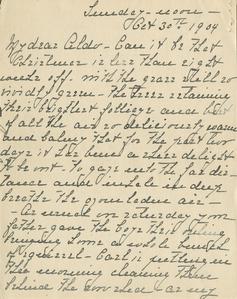 Sunday-noon-
Oct 30th 1904
My dear Aldo- Can it be that
Christmas is less than eight
weeks off. With the grass still so
vividly green- the trees retaining
their brightest foliage and best
of all the air so deliciously warm
and balmy that for the past two
days it has been a sheer delight
to be out. To gaze into the far dis-
tance and inhale in deep
breaths the
as usual on Saturday your
father gave the boys their
bringing home a whole bunch
of squirrel- Carl is putting in
this morning cleaning them
behind the